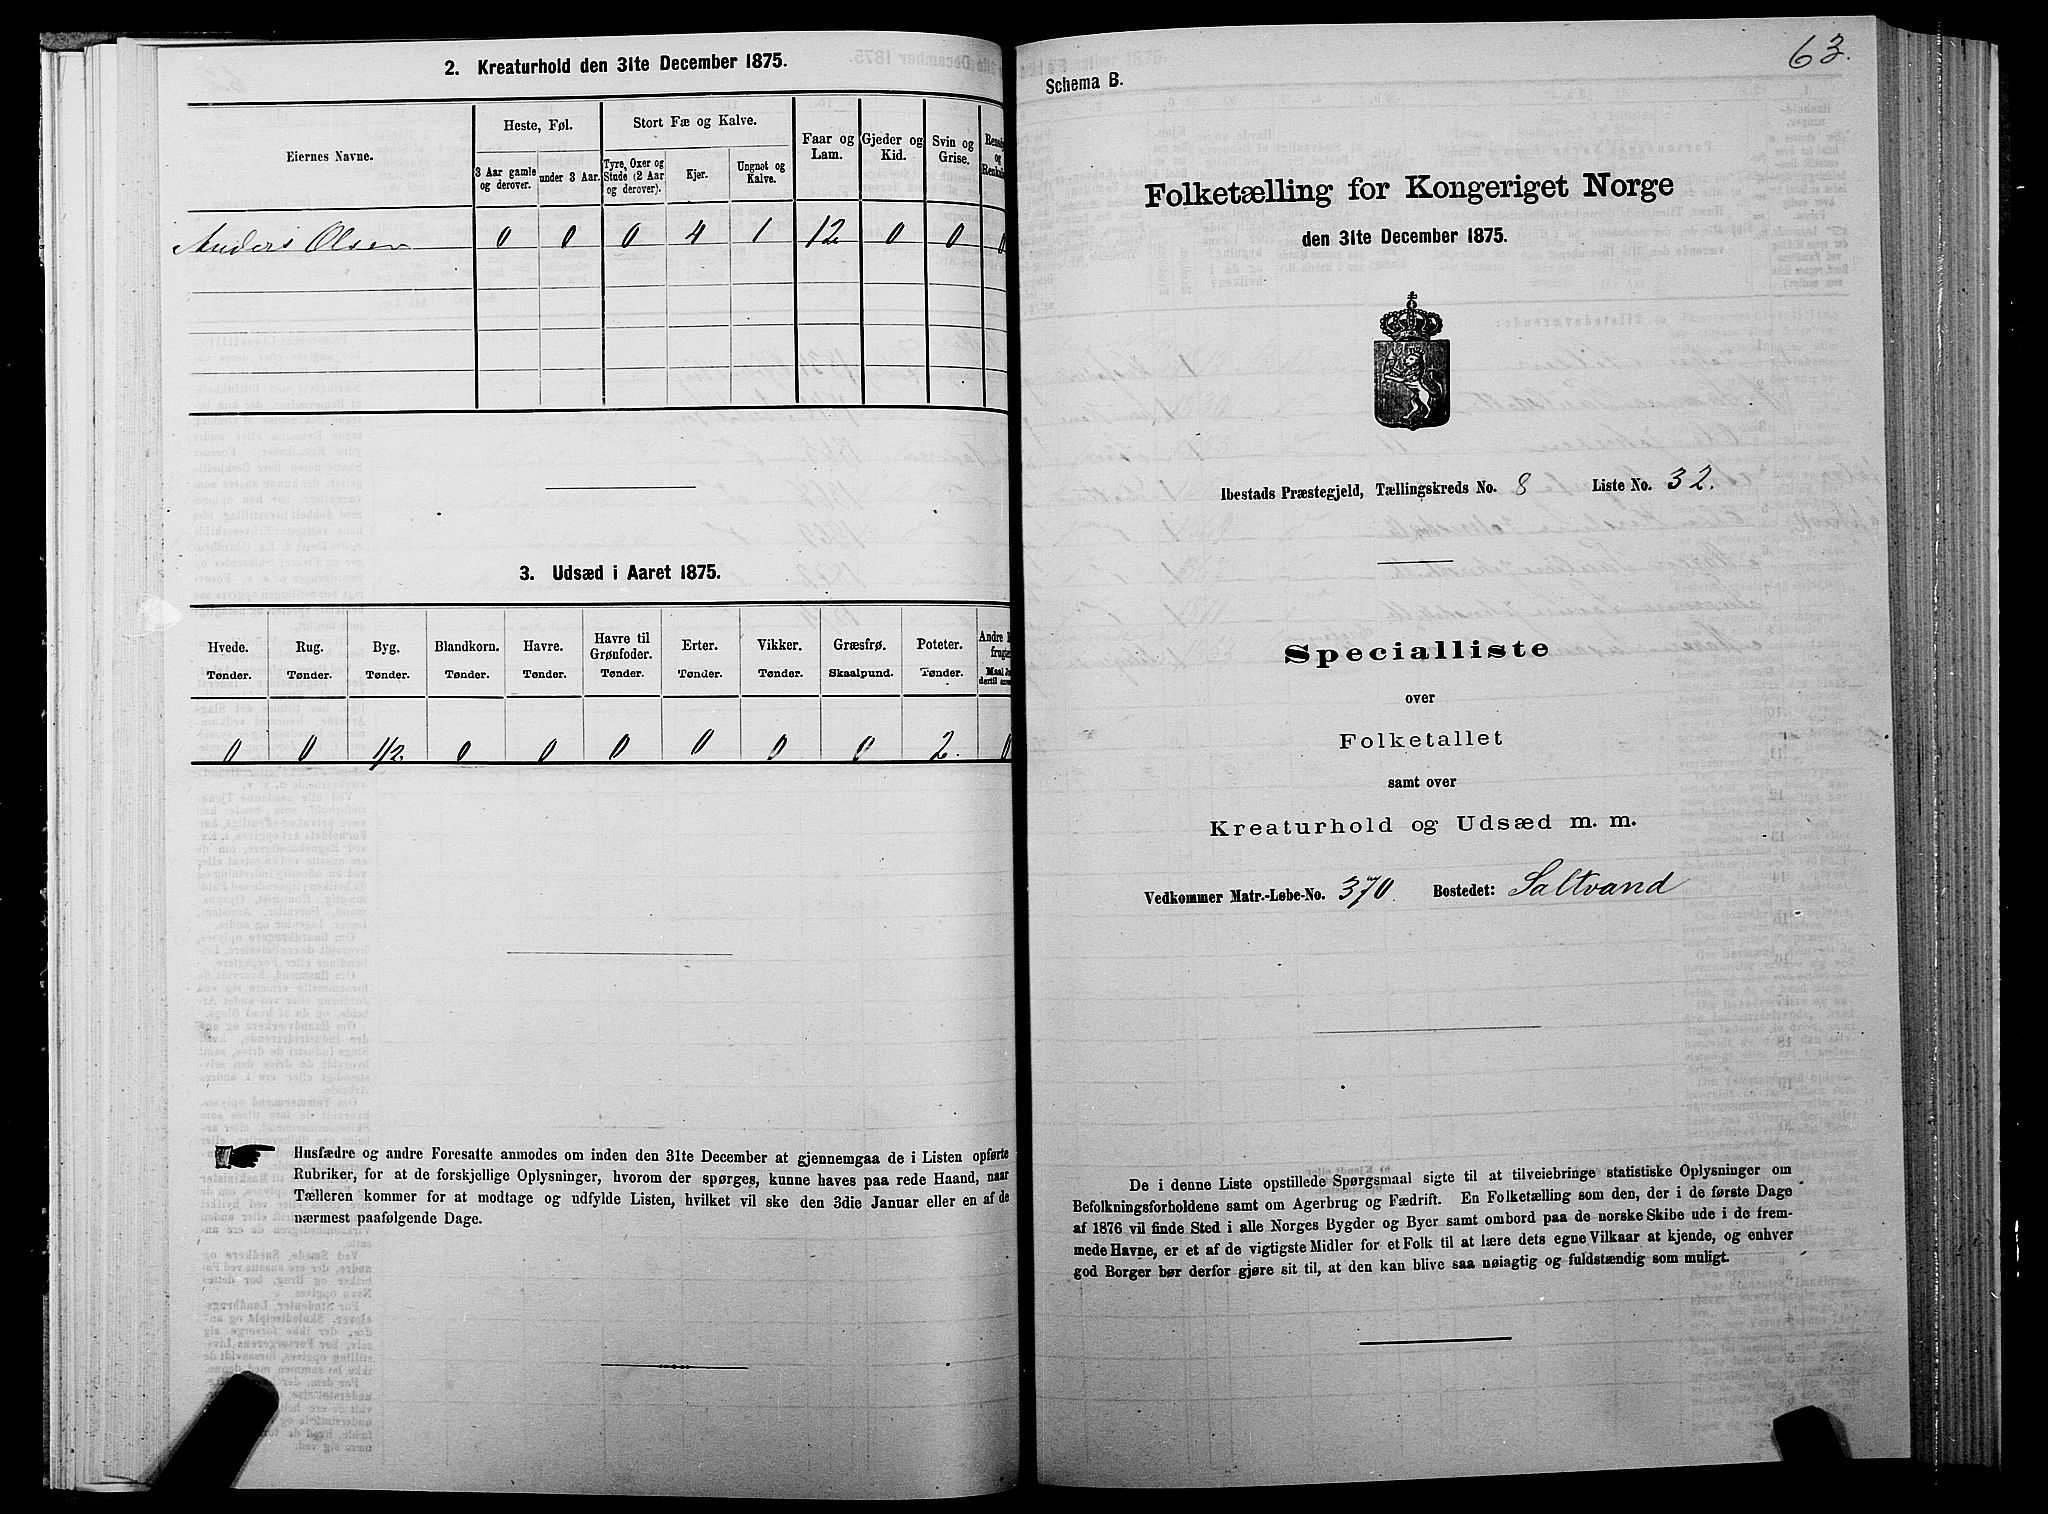 2. Kreaturhold den 31te December 1875.
Eiernes Navne.
Heste, Føl.
3 Aar gamle og derover.
under 3 Aar.
Stort Fæ og Kalve.
Tyre, Oxer og Stude (2 Aar og derover).
Kjer.
Ungnøt og Kalve.
Faar og Lam.
Gjeder og Kid.
Svin og Grise.
Anders Olsen 0 0 0 4 1 12 0 0 0
3. Udsæd i Aaret 1875.
Hvede. Rug. Byg. Blandkorn. Havre. Havre til Grønfoder. Erter. Vikker. Græsfrø. Poteter.
Tønder. Tønder. Tønder. Tønder. Tønder. Tønder. Tønder. Tønder. Skaalpund. Tønder.
0 0 1/2. 0 0 0 0 0 0 2. 0
Husfædre og andre Foresatte anmodes om inden den 31te December at gjennemgaa de i Listen opførte
Rubriker, for at de forskjellige Oplysninger, hvorom der spørges, kunne haves paa rede Haand, naar
Tælleren kommer for at modtage og udfylde Listen, hvilket vil ske den 3die Januar eller en af de
nærmest paafølgende Dage.
63.
Schema B.
Folketælling for Kongeriget Norge
den 31te December 1875.
Ibestads Præstegjeld, Tællingskreds No. 8 Liste No. 32.
Specialliste
over
Folketallet
samt over
Kreaturhold og Udsæd m. m.
Vedkommer Matr.-Løbe-No. 370. Bostedet: Saltvand
De i denne Liste opstillede Spørgsmaal sigte til at tilveiebringe statistiske Oplysninger om
Befolkningsforholdene samt om Agerbrug og Fædrift. En Folketælling som den, der i de første Dage
af 1876 vil finde Sted i alle Norges Bygder og Byer samt ombord paa de norske Skibe ude i de frem-
mede Havne, er et af de vigtigste Midler for et Folk til at lære dets egne Vilkaar at kjende, og enhver
god Borger bør derfor gjøre sit til, at den kan blive saa nøiagtig og fuldstændig som muligt.